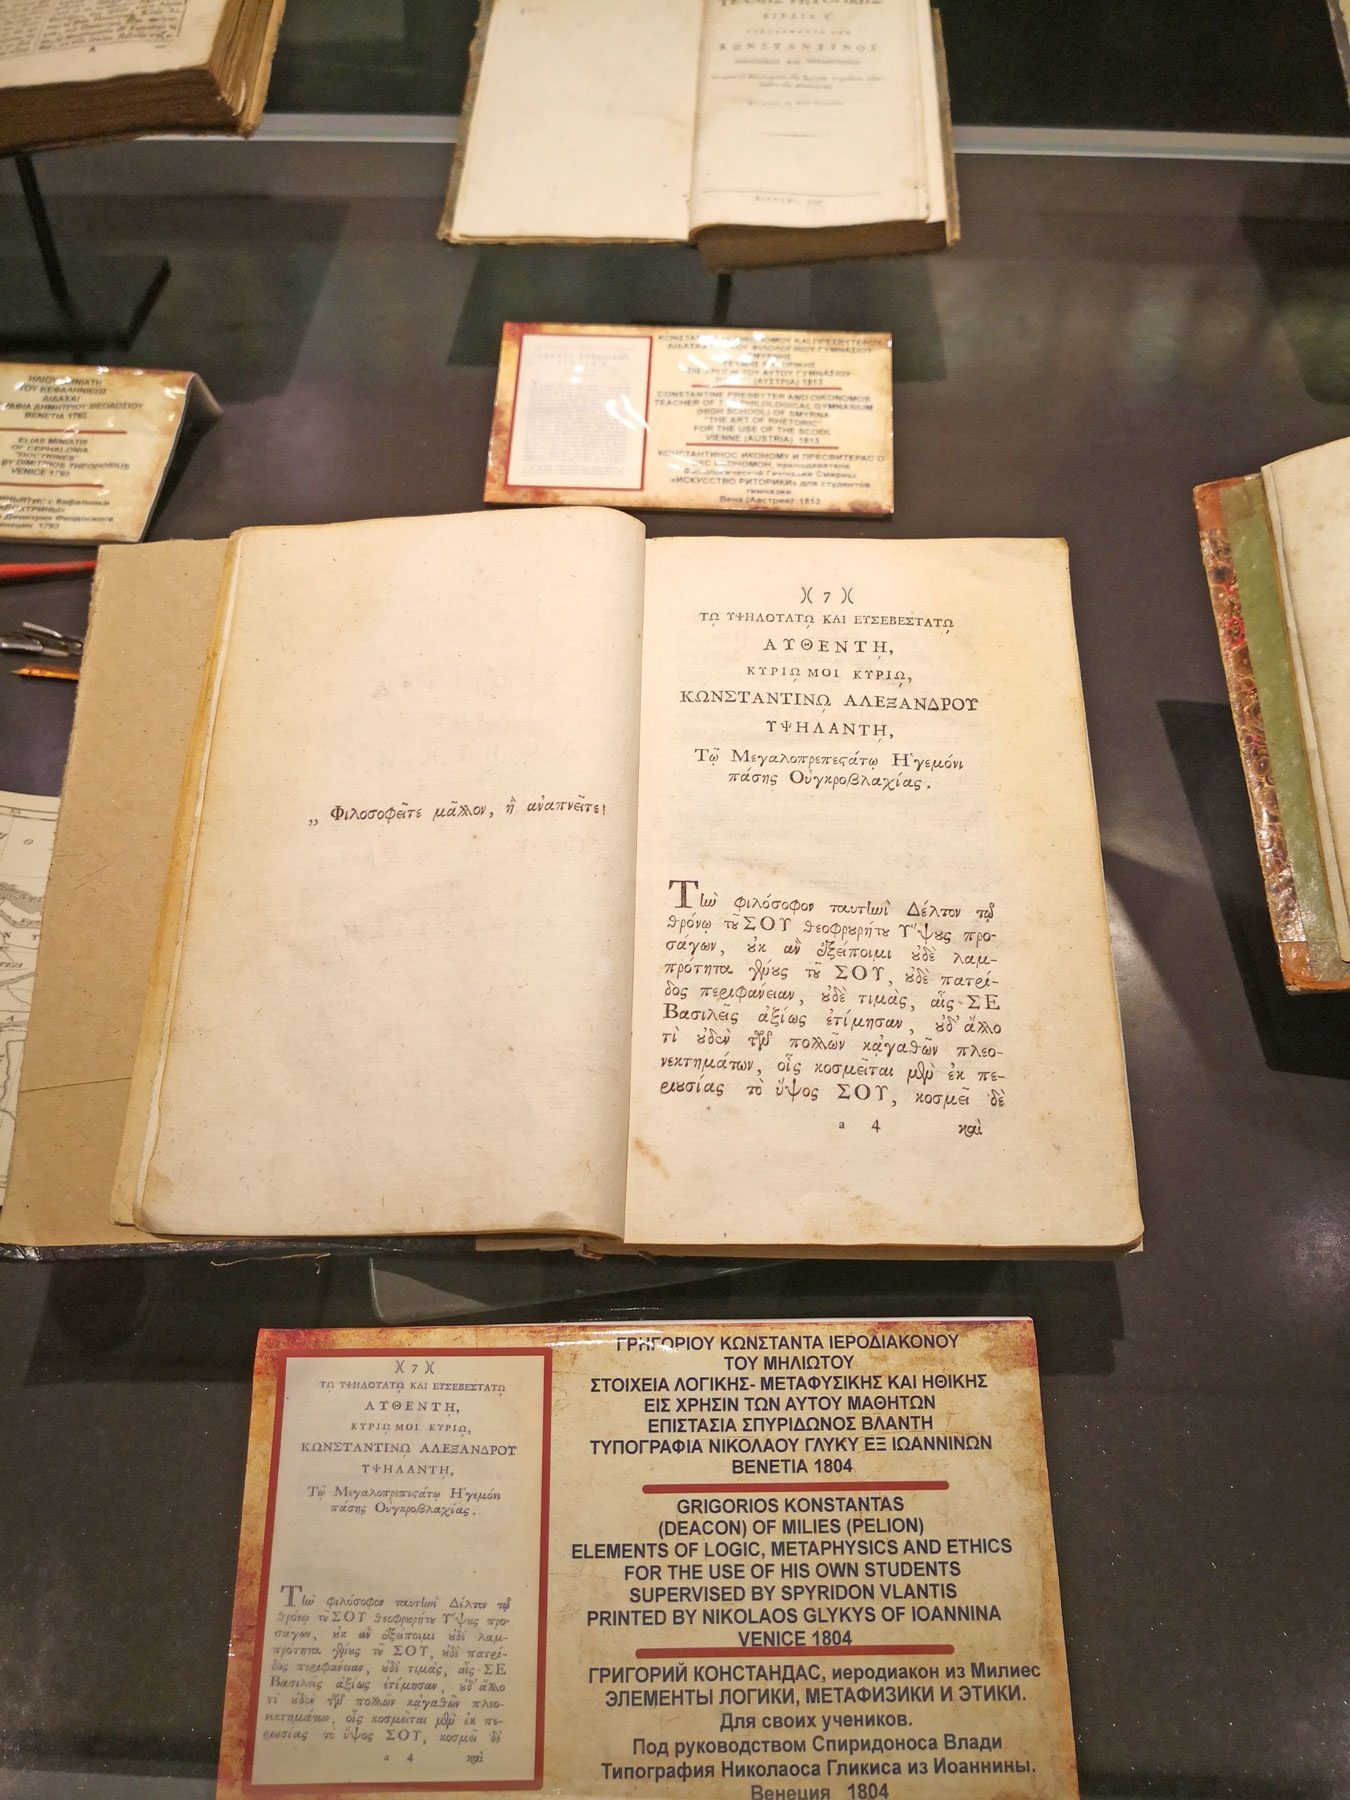 ΤΕΧΝΗΣ ΡΗΤΟΡΙΚΗΣ
ΚΩΝΣΤΑΝΤΙΝΟΥ
ΗΛΙΟΥ ΜΗΝΙΑΤΗ
ΤΟΥ ΚΕΦΑΛΗΝΕΩΣ
ΔΙΔΑΧΑΙ
ΔΗΜΗΤΡΙΟΥ ΘΕΟΔΟΣΙΟΥ
ΒΕΝΕΤΙΑ
ELIAS MINIATIS
OF CEPHALONIA
"DOCTRINES"
BY DIMITRIOS THEODOSIUS
VENICE
с Кефалоньи
Димитрия Феодосиоса
ΚΑΙ ΠΡΕΣΒΥΤΕΡΟΥ
ΦΙΛΟΛΟΓΙΚΟΥ ΓΥΜΝΑΣΙΟΥ
ΣΜΥΡΝΗΣ
ΡΗΤΟΡΙΚΗΣ
ΤΟΥ ΑΥΤΟΥ ΓΥΜΝΑΣΙΟΥ
(ΑΥΣΤΡΙΑ) 1813
CONSTANTINE PRESBYTER AND OIKONOMOS
TEACHER OF THE PHILOLOGICAL GYMNASIUM
(HIGH SCHOOL) OF SMYRNA
"THE ART OF RHETORIC"
FOR THE USE OF THE SCOOL
VIENNE (AUSTRIA) 1813
КОНСТАНТИНОС ИКОНОМУ И ПРЕСВИТЕРАС О
ЕКОНОМОН, преподавателя
Филологической Гимназии Смирны.
«ИСКУССТВО РИТОРИКИ» для студентов
гимназии.
Вена (Австрия). 1813
„ Φιλοσοφεῖτε μᾶλλον, ἢ ἀναπνεῖτε!
)( 7 )(
Τῼ ΥΨΗΛΟΤΑΤῼ ΚΑΙ ΕΥΣΕΒΕΣΤΑΤῼ
ΑΥΘΕΝΤῌ,
ΚΥΡΙῼ ΜΟΙ ΚΥΡΙῼ,
ΚΩΝΣΤΑΝΤΙΝῼ ΑΛΕΞΑΝΔΡΟΥ
ΥΨΗΛΑΝΤῌ,
Τῷ Μεγαλοπρεπεϛάτῳ Ἡγεμόνι
πάσης Οὐγκροβλαχίας.
Τὴν φιλόσοφον ταυτηνὶ Δέλτον τῷ
θρόνῳ τȣ͂ ΣΟΥ θεοφρȣρήτȣ Ὕψȣς προ-
σάγων, ȣ̓κ ἂν ἐξείποιμι ȣ̓δὲ λαμ-
πρότητα γένȣς τȣ͂ ΣΟΥ, ȣ̓δὲ πατρί-
δος περιφάνειαν, ȣ̓δὲ τιμὰς, αἷς ΣΕ
Βασιλεῖς ἀξίως ἐτίμησαν, ȣ̓δ' ἄλλο
τὶ ȣ̓δὲν τῶν πολλῶν κᾀγαθῶν πλεο-
νεκτημάτων, οἷς κοσμεῖται μὲν ἐκ πε-
ριȣσίας τὸ ὕψος ΣΟΥ, κοσμεῖ δὲ
a 4 καὶ
)( 7 )(
Τῼ ΥΨΗΛΟΤΑΤῼ ΚΑΙ ΕΥΣΕΒΕΣΤΑΤῼ
ΑΥΘΕΝΤῌ,
ΚΥΡΙῼ ΜΟΙ ΚΥΡΙῼ,
ΚΩΝΣΤΑΝΤΙΝῼ ΑΛΕΞΑΝΔΡΟΥ
ΥΨΗΛΑΝΤῌ,
Τῷ Μεγαλοπρεπεϛάτῳ Ἡγεμόνι
πάσης Οὐγκροβλαχίας.
Τὴν φιλόσοφον ταυτηνὶ Δέλτον τῷ
θρόνῳ τȣ͂ ΣΟΥ θεοφρȣρήτȣ Ὕψȣς προ-
σάγων, ȣ̓κ ἂν ἐξείποιμι ȣ̓δὲ λαμ-
πρότητα γένȣς τȣ͂ ΣΟΥ, ȣ̓δὲ πατρί-
δος περιφάνειαν, ȣ̓δὲ τιμὰς, αἷς ΣΕ
Βασιλεῖς ἀξίως ἐτίμησαν, ȣ̓δ' ἄλλο
τὶ ȣ̓δὲν τῶν πολλῶν κᾀγαθῶν πλεο-
νεκτημάτων, οἷς κοσμεῖται μὲν ἐκ πε-
ριȣσίας τὸ ὕψος ΣΟΥ, κοσμεῖ δὲ
a 4 καὶ
ΓΡΗΓΟΡΙΟΥ ΚΩΝΣΤΑΝΤΑ ΙΕΡΟΔΙΑΚΟΝΟΥ
ΤΟΥ ΜΗΛΙΩΤΟΥ
ΣΤΟΙΧΕΙΑ ΛΟΓΙΚΗΣ- ΜΕΤΑΦΥΣΙΚΗΣ ΚΑΙ ΗΘΙΚΗΣ
ΕΙΣ ΧΡΗΣΙΝ ΤΩΝ ΑΥΤΟΥ ΜΑΘΗΤΩΝ
ΕΠΙΣΤΑΣΙΑ ΣΠΥΡΙΔΩΝΟΣ ΒΛΑΝΤΗ
ΤΥΠΟΓΡΑΦΙΑ ΝΙΚΟΛΑΟΥ ΓΛΥΚΥ ΕΞ ΙΩΑΝΝΙΝΩΝ
ΒΕΝΕΤΙΑ 1804
GRIGORIOS KONSTANTAS
(DEACON) OF MILIES (PELION)
ELEMENTS OF LOGIC, METAPHYSICS AND ETHICS
FOR THE USE OF HIS OWN STUDENTS
SUPERVISED BY SPYRIDON VLANTIS
PRINTED BY NIKOLAOS GLYKYS OF IOANNINA
VENICE 1804
ГРИГОРИЙ КОНСТАНДАС, иеродиакон из Милиес
ЭЛЕМЕНТЫ ЛОГИКИ, МЕТАФИЗИКИ И ЭТИКИ.
Для своих учеников.
Под руководством Спиридоноса Влади
Типография Николаоса Гликиса из Иоаннины.
Венеция 1804